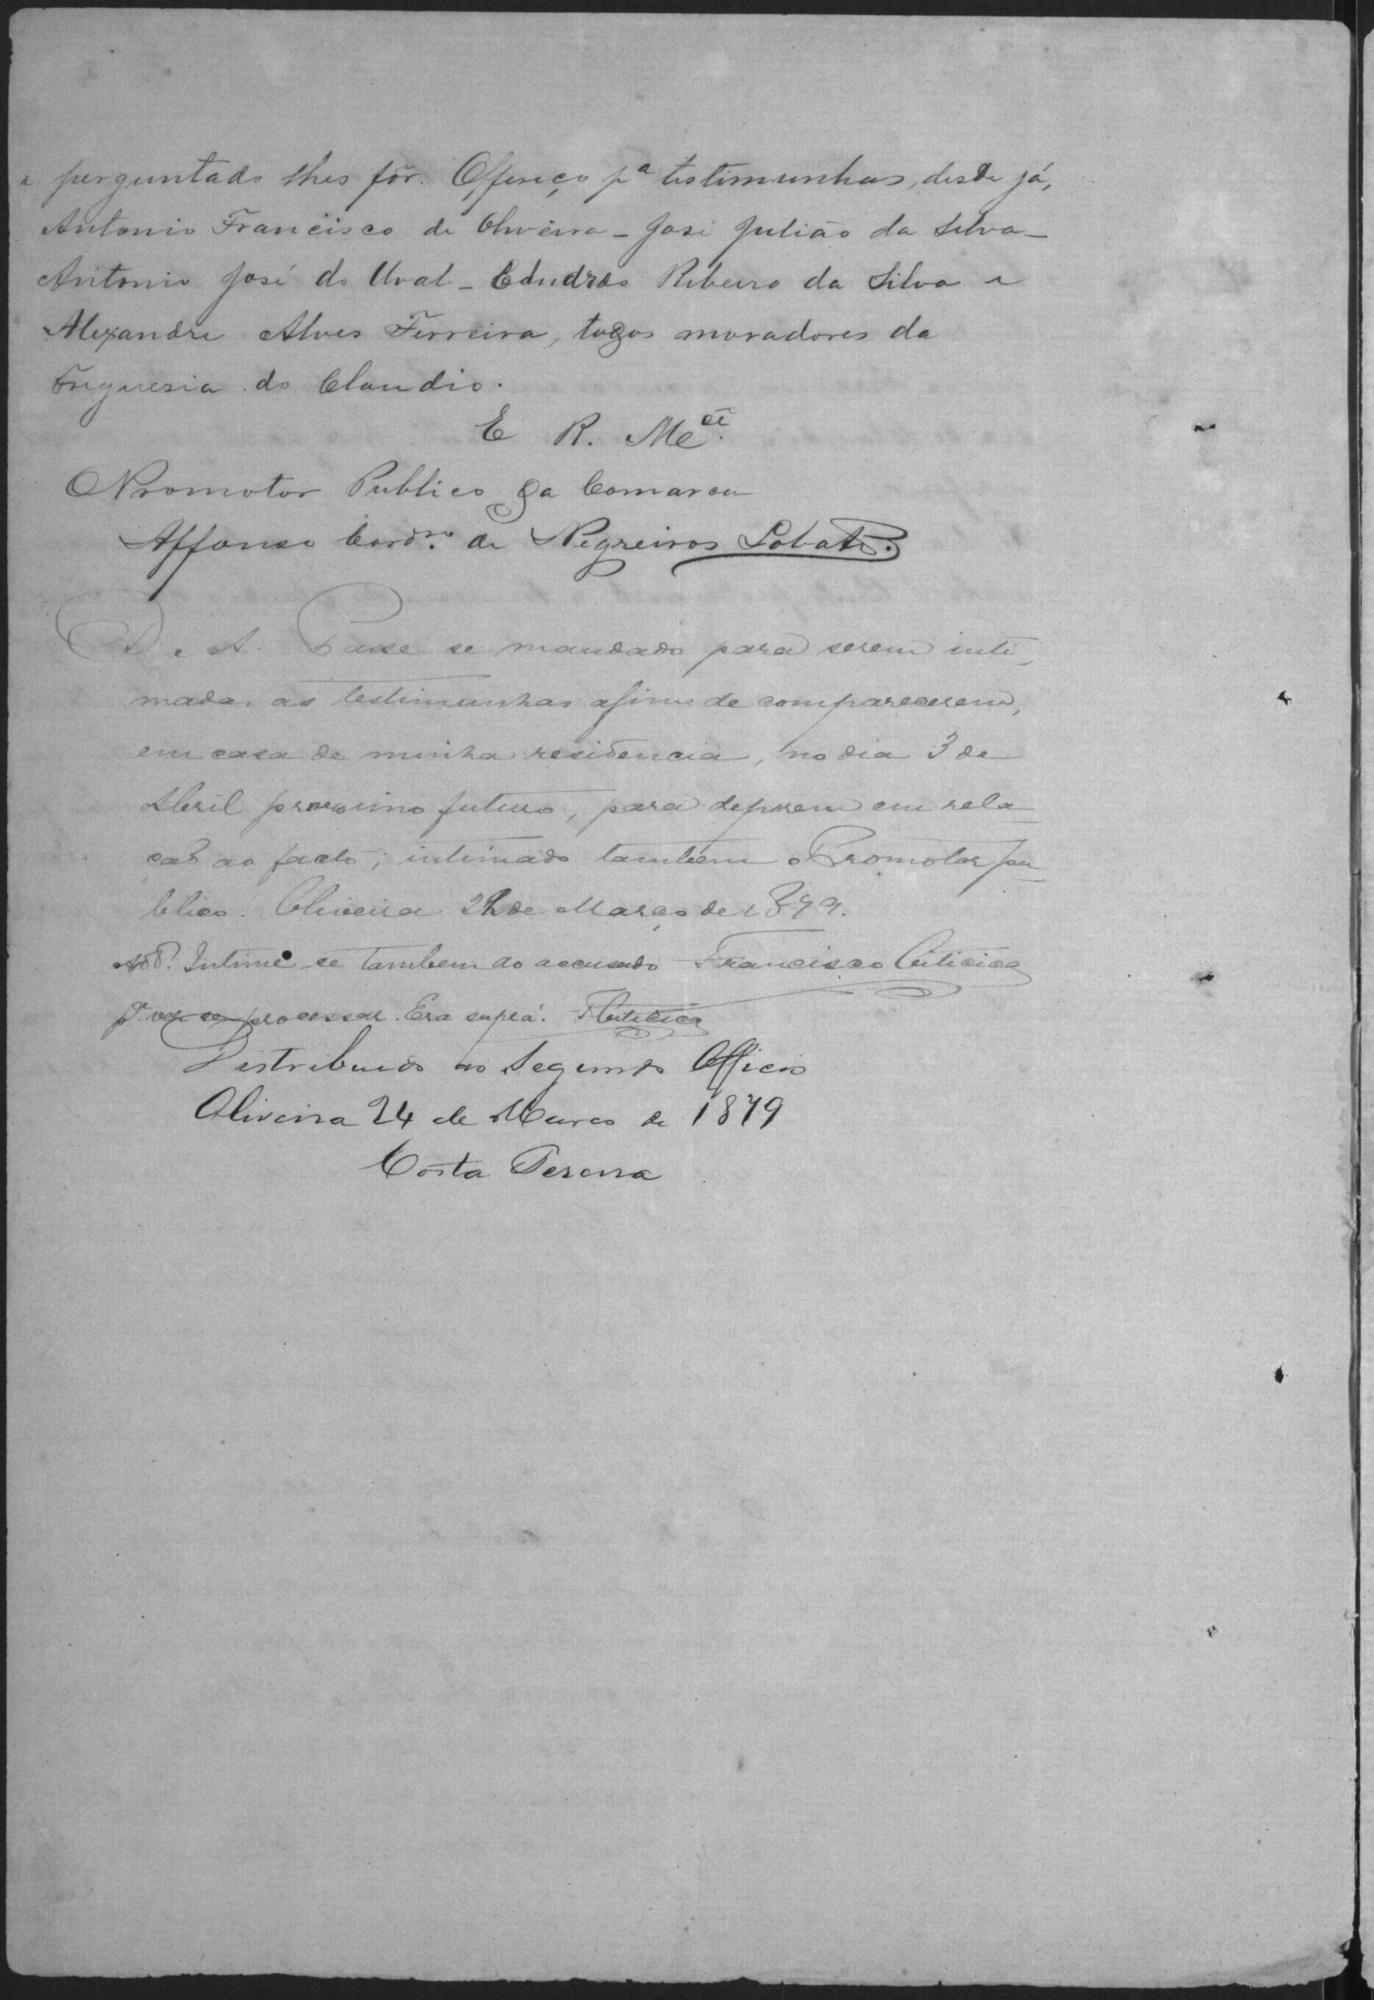 e perguntado lhes fôr. Offereço pª testimunhas, desde já,
Antonio Francisco de Oliveira - José Julião da Silva -
Antonio José do Uval - Esdras Ribeiro da Silva e
Alexandre Alves Ferreira, todos moradores da
Freguesia do Claudio.
E R. Mcê.
O Promotor Publico da Comarca
Affonso Cordrº. de Negreiros Lobato.
D. e A. Passe se mandado para serem inti-
madas as testimunhas afim de comparecerem,
em casa de minha residencia, no dia 3 de
Abril proximo futuro, para deporem em rela-
ção ao facto; intimado tambem o Promotor pu-
blico. Oliveira 22 de Março de 1879.
Intime-se tambem ao accusado Francisco
pª ver se processar. Era supra.
Distribuido ao Segundo Officio
Oliveira 24 de Março de 1879
Costa Pereira